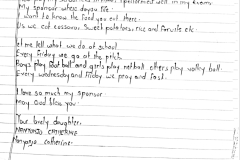 My sponsor where do you live.
I want to know the food you eat there.
Us we eat cassava, Sweet potatoes, rice and
Let me tell what we do at school
Every friday we go at the pitch
Boys play foot ball and girls play netball others play volley ball.
Every wednesday and friday we pray and fast.
I love so much my sponsor
May God bless you.
Your lovely daughter.
CATHERINE
catherine.